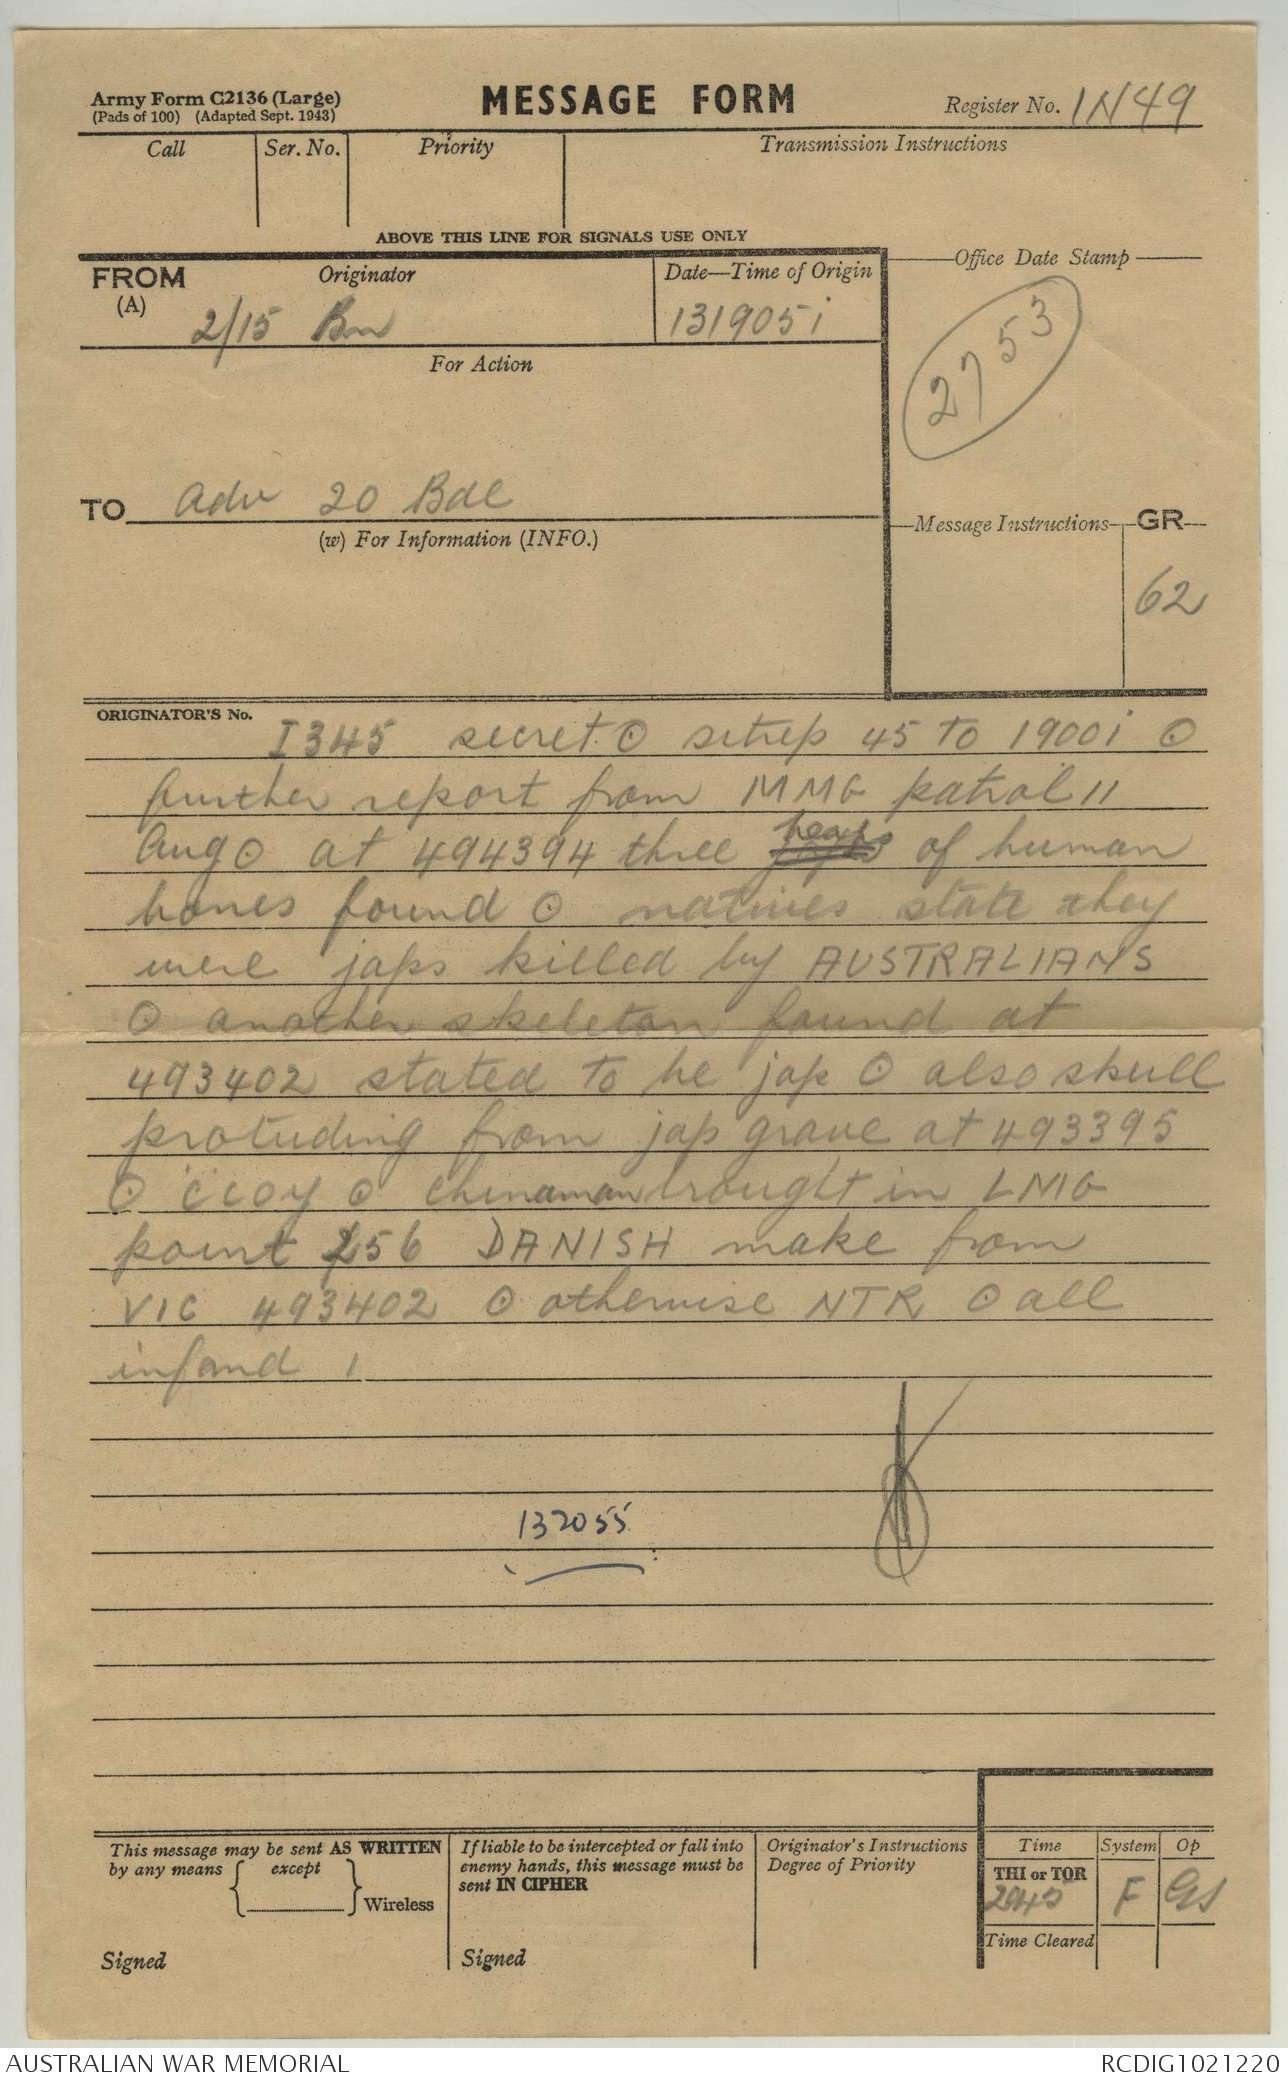 Army Form C2136 (Large)
(Pads of 100) (Adapted Sept. 1943)
MESSAGE FORM
Register No. 1N49
Call
Ser. No.
Priority
Transmission Instructions
ABOVE THIS LINE FOR SIGNALS USE ONLY
FROM
(A)
Originator
2/15 Bn
Date—Time of Origin
131905i
Office Date Stamp
2753
For Action
TO Adv 20 Bde
(w) For Information (INFO.)
Message Instructions
GR
62
ORIGINATOR'S No.
I345 secret ⊙ sitrep 45 to 1900i ⊙
further report from MMG patrol 11
Aug ⊙ at 494394 three heaps of human
bones found ⊙ natives state they
were japs killed by AUSTRALIANS
⊙ another skeleton found at
493402 stated to be jap ⊙ also skull
protuding from jap grave at 493395
⊙ CCOY ⊙ chinaman brought in LMG
point 256 DANISH make from
VIC 493402 ⊙ otherwise NTR ⊙ all
infmd 1
132055
This message may be sent AS WRITTEN
by any means except
Wireless
Signed
If liable to be intercepted or fall into
enemy hands, this message must be
sent IN CIPHER
Signed
Originator's Instructions
Degree of Priority
Time
System
Op
THI or TOR
2045
F
Time Cleared
AUSTRALIAN WAR MEMORIAL
RCDIG1021220